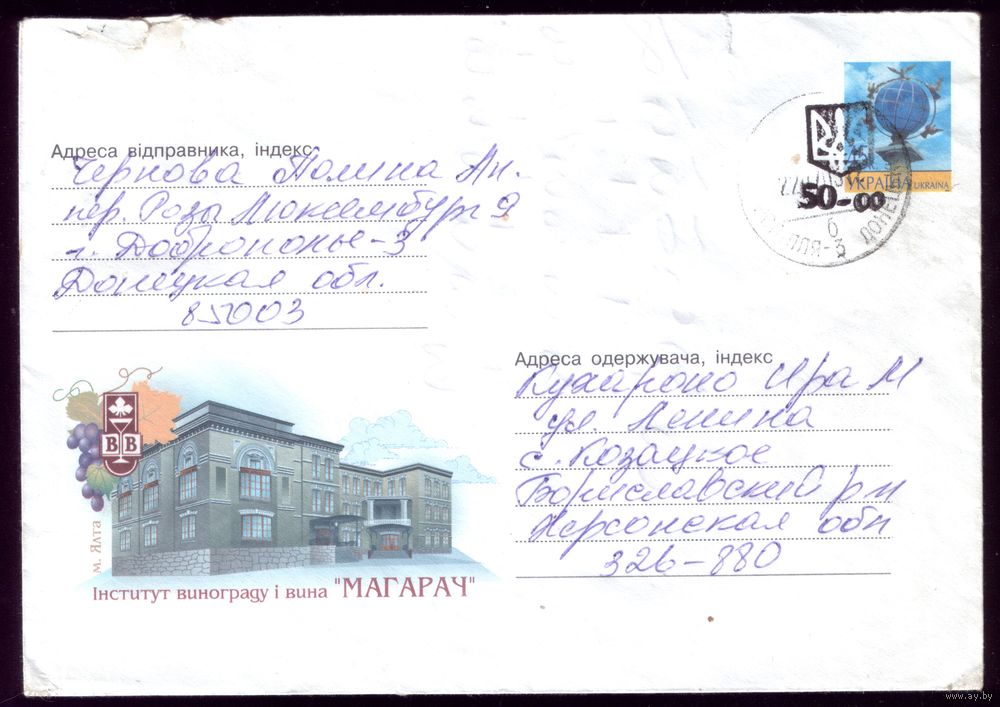 Адреса відправника, індекс
Чернова Полина Ан.
пер. Роза Люксембург 9
г. Доброполье-3
Донецкая обл.
85003
УКРАЇНА UKRAINA
50-00
б
ПЛЯ-3 ДОНЕЦ
Адреса одержувача, індекс
Ира М
ул. Ленина
с. Козацкое
Бориславский рн
Херсонская обл
326-880
В В
м. Ялта
Інститут винограду і вина "МАГАРАЧ"
www.ay.by